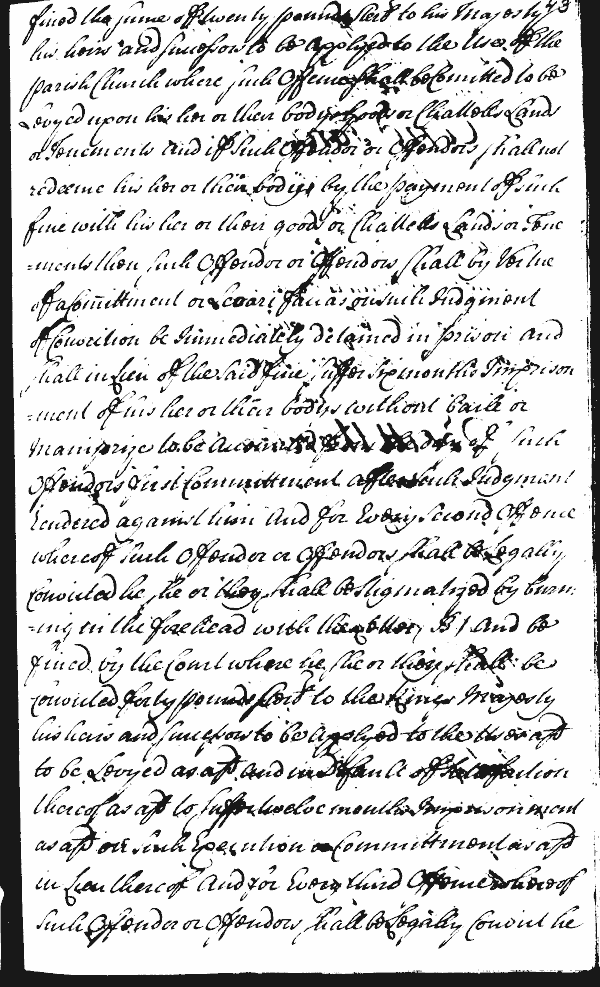 fined the sume of twenty pounds sterl to his Majesty 43
his heirs and sucessors to be applyed to the Use of the
parish Church where such Offence shall be Comitted to be
Levyed upon his her or their bodys goods or Chattells Lands
or Tenements And if such Offendor or Offendors shall not
redeeme his her or their bodys by the payment of such
fine with his her or their goods or Chattells Lands or Tene
=ments then such Offendor or Offendors shall by Vertue
of a Comittment or Levari facias on such Judgment
of Conviction be Immediately detained in prison and
shall in Lieu of the said fine suffer six months Imprison
=ment of his her or their bodys without baile or
mainprize to be from the day of such
Offendors first Committment after such Judgment
rendered against him And for Every Second Offence
whereof such Offendor or Offendors shall be Legally
convicted he, she or they shall be stigmatized by burn:
=ing in the forehead with the letter B And be
fined by the Court where he, she or they shall be
convicted forty pounds sterl to the Kings Majesty
his heirs and sucessors to be applyed to the Uses afd
to be Levyed as afd And in default of
thereof as afd to suffer twelve months Imprisonment
as afd on such Execution or Committment as afd
in Lieu thereof And for Every third Offence whereof
such Offendor or Offendors shall be Legally Convict he